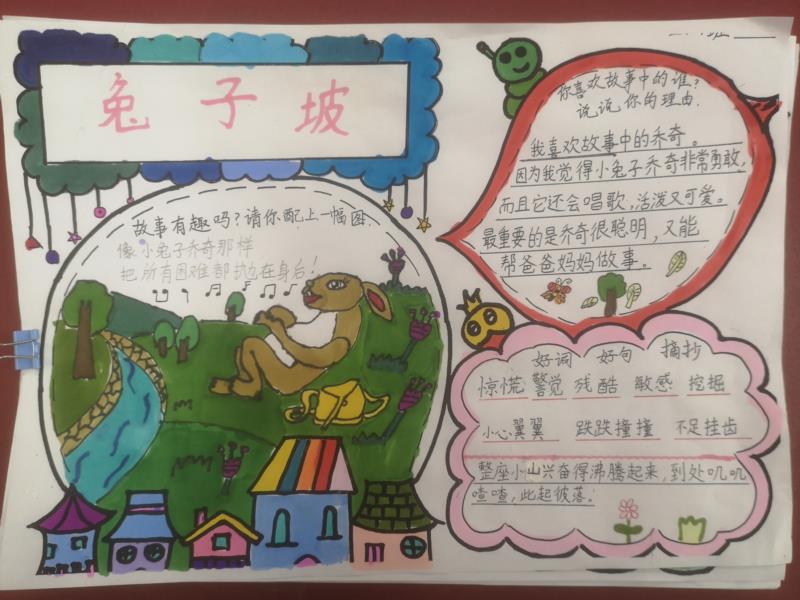 兔子坡
班
故事有趣吗?请你配上一幅图.
像小兔子乔奇那样
把所有困难都抛在身后!
你喜欢故事中的谁?
说说你的理由.
我喜欢故事中的乔奇。
因为我觉得小兔子乔奇非常勇敢,
而且它还会唱歌,活泼又可爱。
最重要的是乔奇很聪明,又能
帮爸爸妈妈做事。
好词 好句 摘抄
惊慌 警觉 残酷 敏感 挖掘
小心翼翼 跌跌撞撞 不足挂齿
整座小山兴奋得沸腾起来,到处叽叽
喳喳,此起彼落。